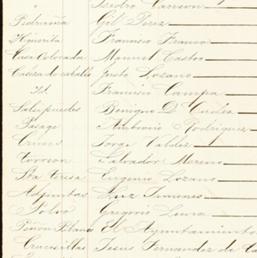 " Isidro Carrion
Pedriceña Gil Perez
Florerita Francisco Franco
Casa Colorada Manuel Castro
Cabeza de caballo Justo Lozano
Id Francisco Campa
Salsipuedes Benigno D.
Pasage Ambrosio Rodriguez
Cruces Jorge Valdez
Torreon Salvador Moreno
Sta Teresa Eugenio Lozano
Adjuntas Luz Jimenes
Polvo Gregorio Luna
Peñon Blanco El Ayuntamiento
Crucesillas Jesus Fernandez de Ca